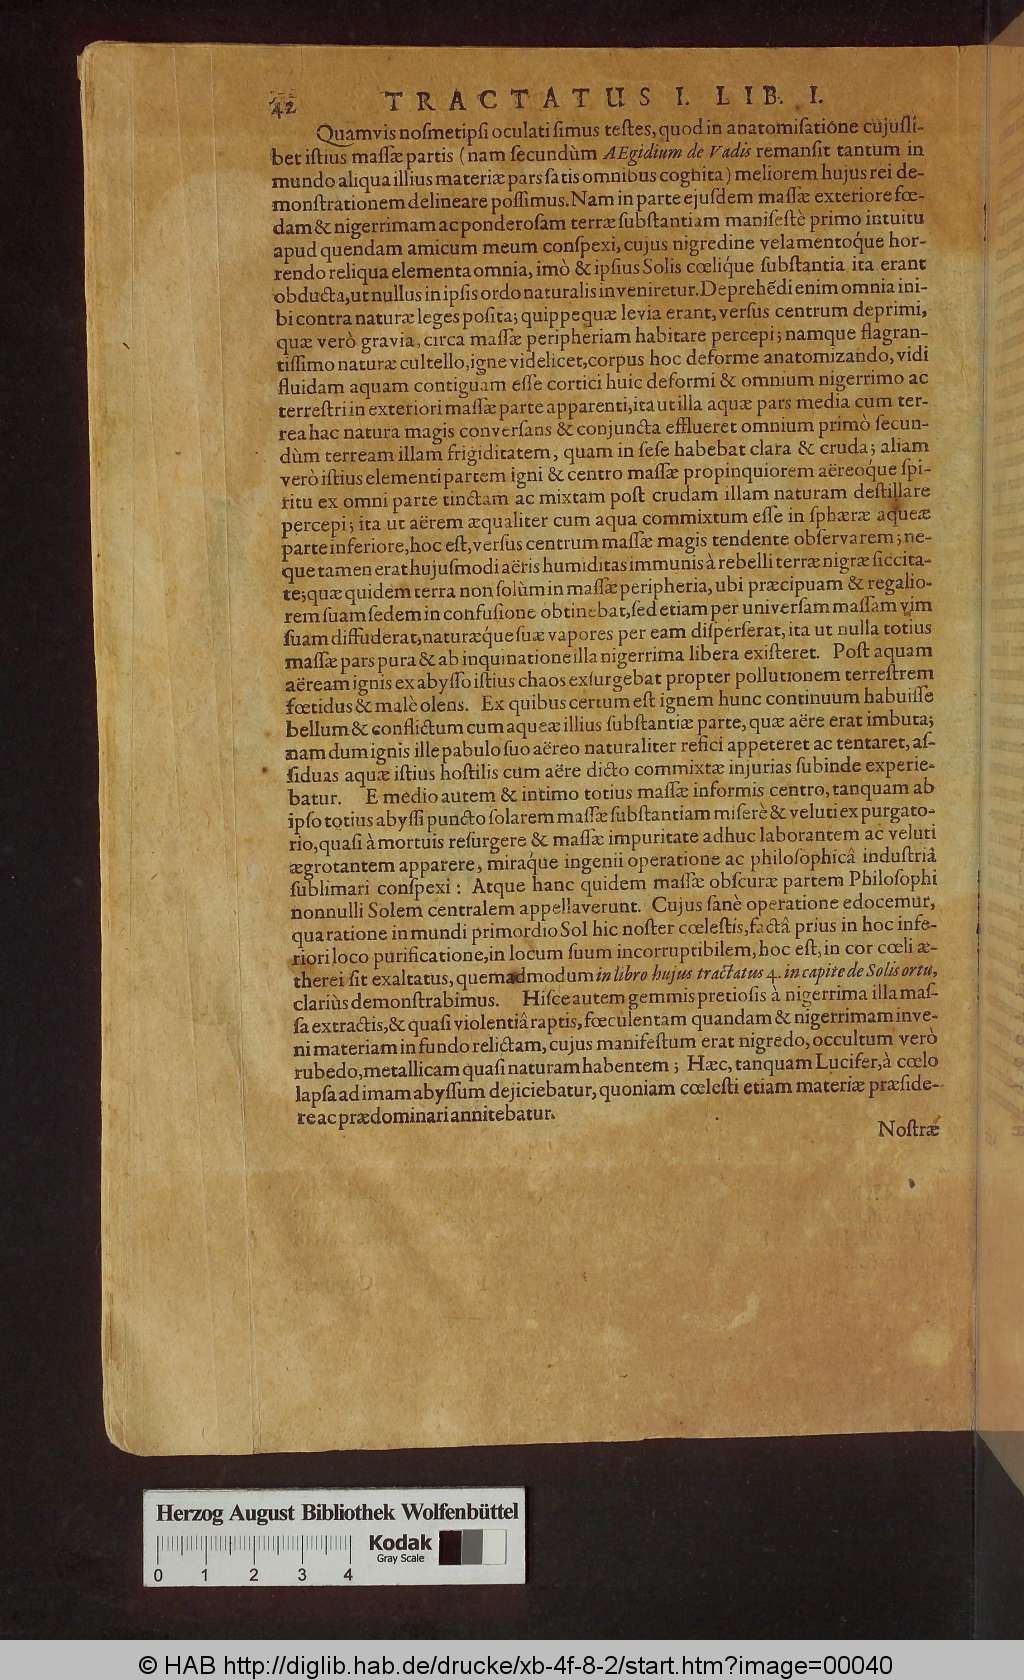 42
TRACTATUS I. LIB. I.
Quamvis noſmetipſi oculati ſimus teſtes, quod in anatomiſatióne cujuſli-
bet iſtius maſſæ partis (nam ſecundùm AEgidium de Vadis remanſit tantum in
mundo aliqua illius materiæ pars ſatis omnibus cognita) meliorem hujus rei de-
monſtrationem delineare poſſimus. Nam in parte ejuſdem maſſæ exteriore fœ-
dam & nigerrimam ac ponderoſam terræ ſubſtantiam manifeſtè primo intuitu
apud quendam amicum meum conſpexi, cujus nigredine velamentoq́ue hor-
rendo reliqua elementa omnia, imò & ipſius Solis cœliq́ue ſubſtantia ita erant
obducta, ut nullus in ipſis ordo naturalis inveniretur. Deprehẽdi enim omnia ini-
bi contra naturæ leges poſita; quippe quæ levia erant, verſus centrum deprimi,
quæ verò gravia, circa maſſæ peripheriam habitare percepi; namque flagran-
tiſſimo naturæ cultello, igne videlicet, corpus hoc deforme anatomizando, vidi
fluidam aquam contiguam eſſe cortici huic deformi & omnium nigerrimo ac
terreſtri in exteriori maſſæ parte apparenti, ita ut illa aquæ pars media cum ter-
rea hac natura magis converſans & conjuncta efflueret omnium primò ſecun-
dùm terream illam frigiditatem, quam in ſeſe habebat clara & cruda; aliam
verò iſtius elementi partem igni & centro maſſæ propinquiorem aëreoq́ue ſpi-
ritu ex omni parte tinctam ac mixtam poſt crudam illam naturam deſtillare
percepi; ita ut aërem æqualiter cum aqua commixtum eſſe in ſphæræ aqueæ
parte inferiore, hoc eſt, verſus centrum maſſæ magis tendente obſervarem; ne-
que tamen erat hujuſmodi aëris humiditas immunis à rebelli terræ nigræ ſiccita-
te; quæ quidem terra non ſolùm in maſſæ peripheria, ubi præcipuam & regalio-
rem ſuam ſedem in confuſione obtinebat, ſed etiam per univerſam maſſam vim
ſuam diffuderat, naturæq́ue ſuæ vapores per eam diſperſerat, ita ut nulla totius
maſſæ pars pura & ab inquinatione illa nigerrima libera exiſteret. Poſt aquam
aëream ignis ex abyſſo iſtius chaos exſurgebat propter pollutionem terreſtrem
fœtidus & malè olens. Ex quibus certum eſt ignem hunc continuum habuiſſe
bellum & conflictum cum aqueæ illius ſubſtantiæ parte, quæ aëre erat imbuta;
nam dum ignis ille pabulo ſuo aëreo naturaliter refici appeteret ac tentaret, aſ-
ſiduas aquæ iſtius hoſtilis cum aëre dicto commixtæ injurias ſubinde experie-
batur. E medio autem & intimo totius maſſæ informis centro, tanquam ab
ipſo totius abyſſi puncto ſolarem maſſæ ſubſtantiam miſerè & veluti ex purgato-
rio, quaſi à mortuis reſurgere & maſſæ impuritate adhuc laborantem ac veluti
ægrotantem apparere, miraq́ue ingenii operatione ac philoſophicâ induſtriâ
ſublimari conſpexi: Atque hanc quidem maſſæ obſcuræ partem Philoſophi
nonnulli Solem centralem appellaverunt. Cujus ſanè operatione edocemur,
qua ratione in mundi primordio Sol hic noſter cœleſtis, factâ prius in hoc infe-
riori loco purificatione, in locum ſuum incorruptibilem, hoc eſt, in cor cœli æ-
therei ſit exaltatus, quemadmodum in libro hujus tractatus 4. in capite de Solis ortu,
clariùs demonſtrabimus. Hiſce autem gemmis pretioſis à nigerrima illa maſ-
ſa extractis, & quaſi violentiâ raptis, fœculentam quandam & nigerrimam inve-
ni materiam in fundo relictam, cujus manifeſtum erat nigredo, occultum verò
rubedo, metallicam quaſi naturam habentem; Hæc, tanquam Lucifer, à cœlo
lapſa ad imam abyſſum dejiciebatur, quoniam cœleſti etiam materiæ præſide-
re ac prædominari annitebatur.
Noſtræ
Herzog August Bibliothek Wolfenbüttel
Kodak
Gray Scale
0 1 2 3 4
© HAB http://diglib.hab.de/drucke/xb-4f-8-2/start.htm?image=00040